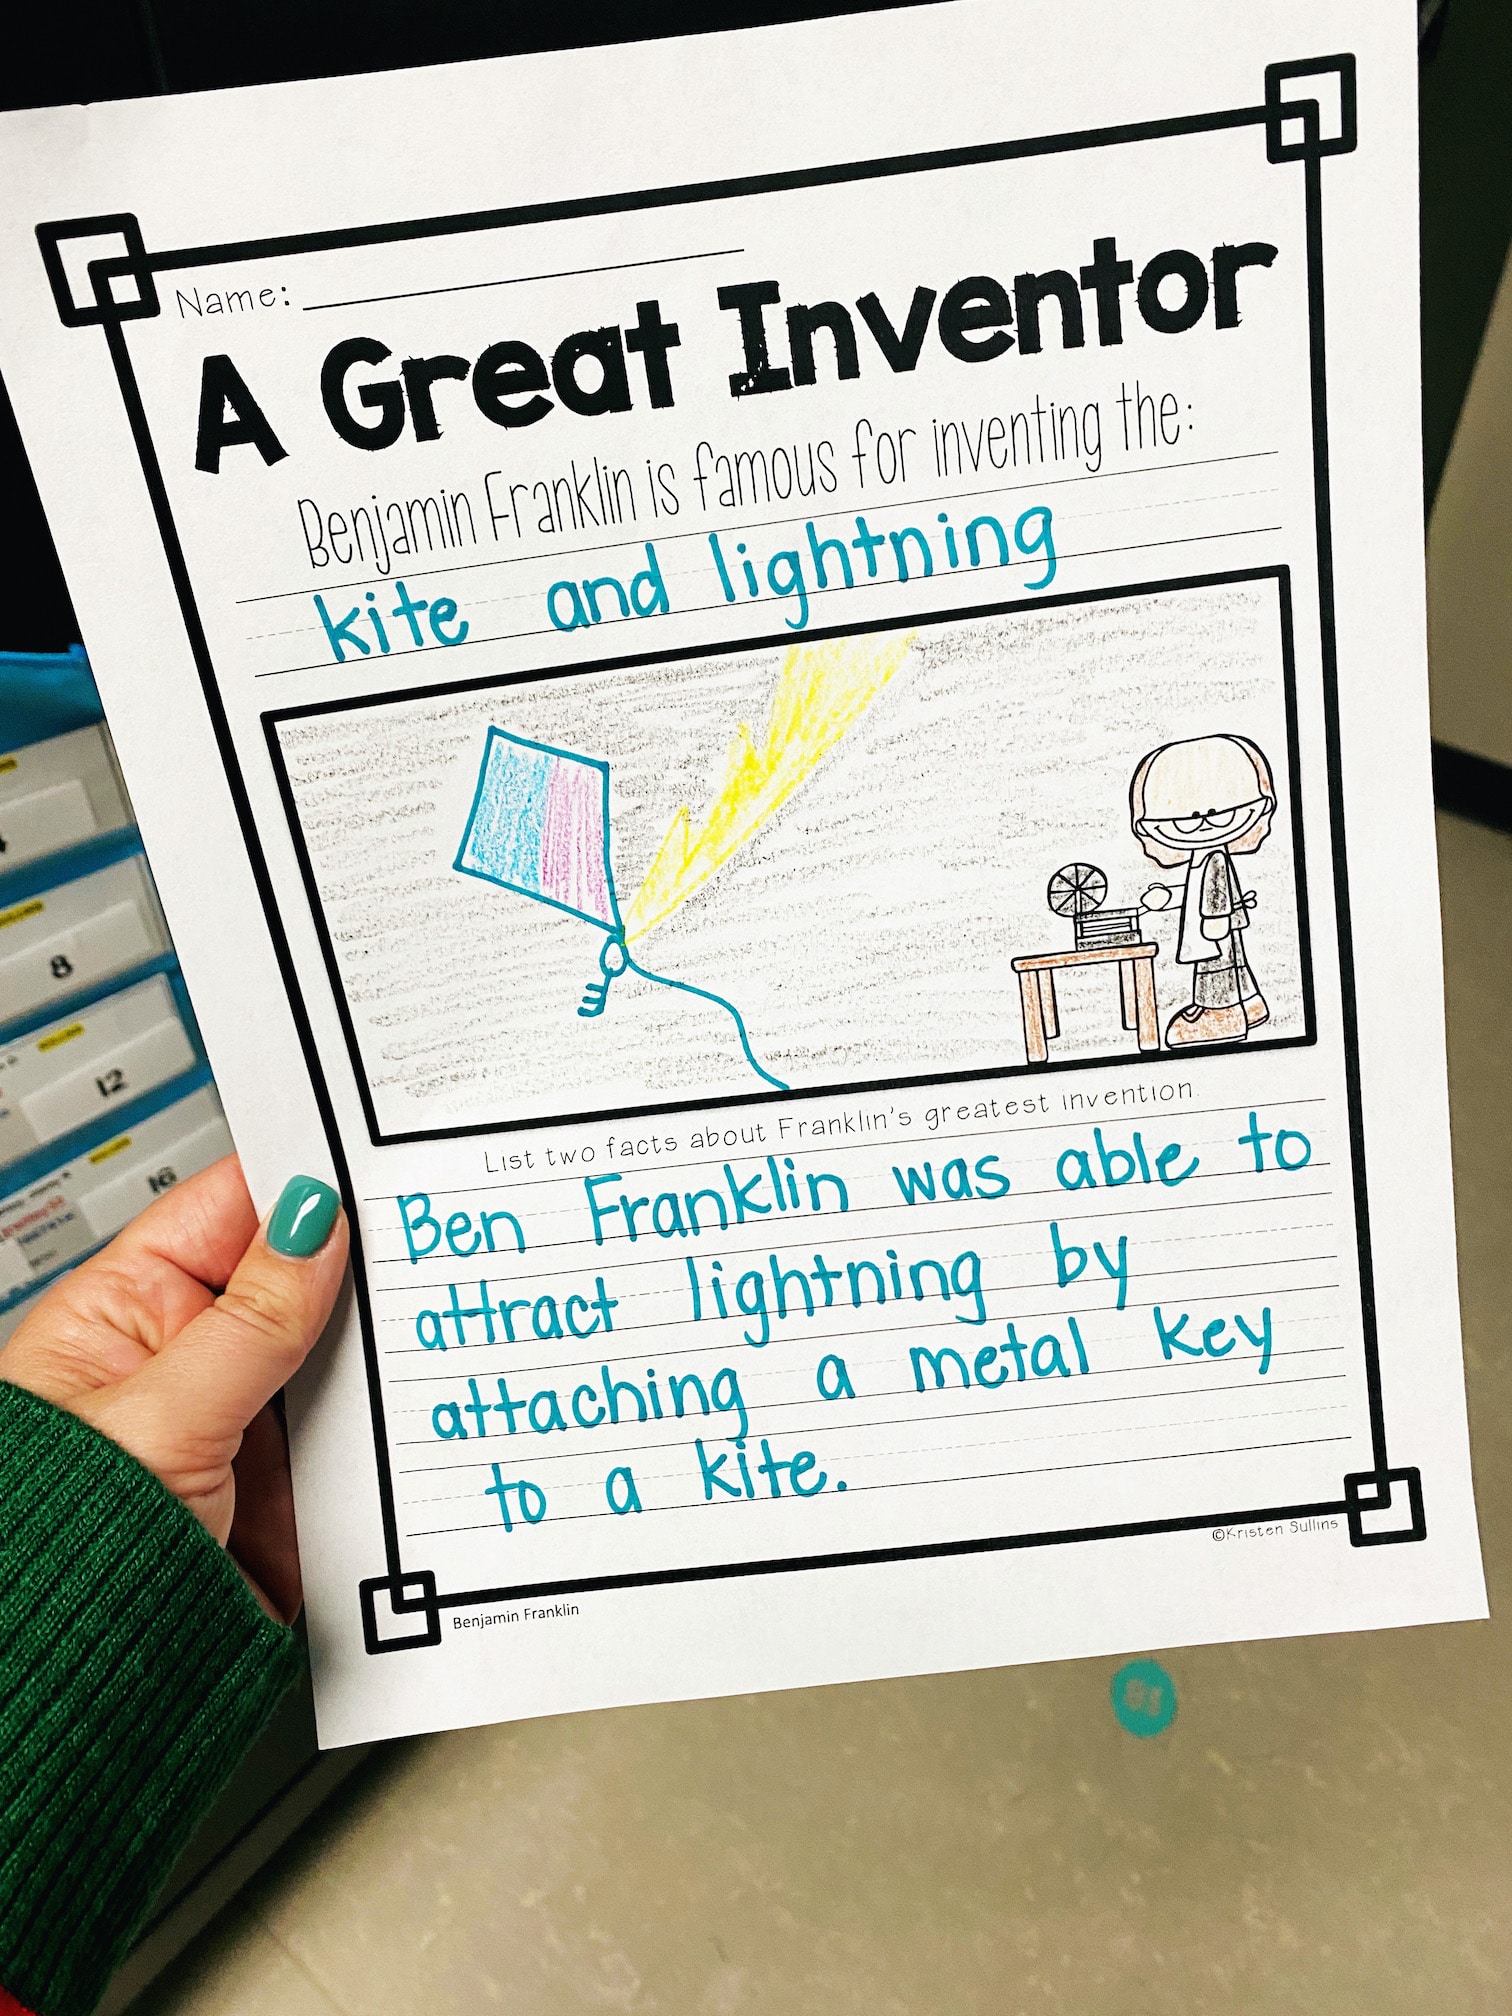 Name:
A Great Inventor
Benjamin Franklin is famous for inventing the:
kite and lightning
List two facts about Franklin's greatest invention.
Ben Franklin was able to
attract lightning by
attaching a metal key
to a kite.
©Kristen Sullins
Benjamin Franklin
8
12
16